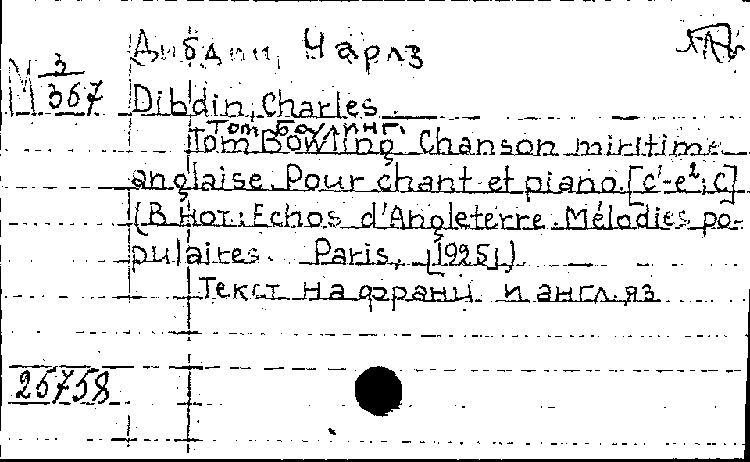 Дибдин, Чарлз
М 3/367
Dibdin, Charles.
Том Боулинг.
Tom Bowling. Chanson miritime
anglaise. Pour chant et piano. [c'-e²; C]
(В нот.: Echos d'Angleterre. Mélodies po-
pulaires. Paris, [1925].)
Текст на франц. и англ. яз
25758